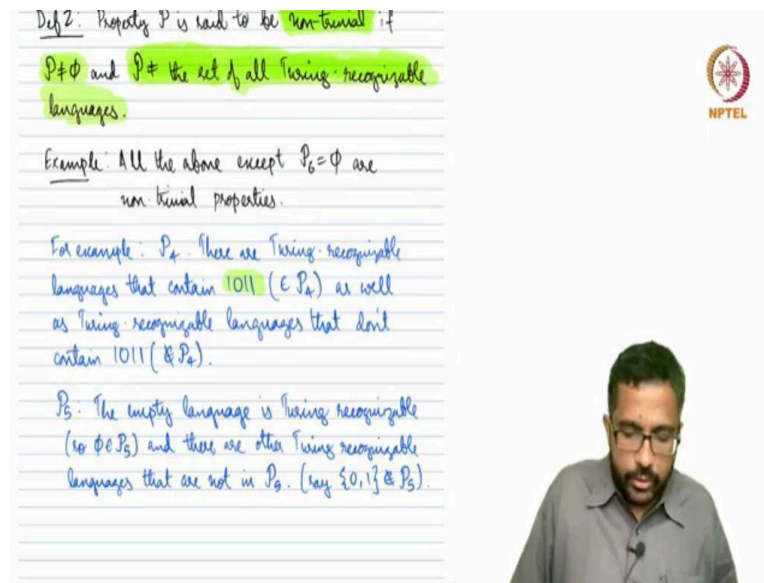 Def 2: Property P is said to be non-trivial if
P≠∅ and P≠ the set of all Turing-recognizable
languages.
Example: All the above except P₆=∅ are
non-trivial properties.
For example: P₄. There are Turing-recognizable
languages that contain 1011 (∈ P₄) as well
as Turing-recognizable languages that don't
contain 1011 (∉ P₄).
P₅: The empty language is Turing recognizable
(so ∅∈P₅) and there are other Turing recognizable
languages that are not in P₅. (say {0,1} ∉ P₅).
NPTEL